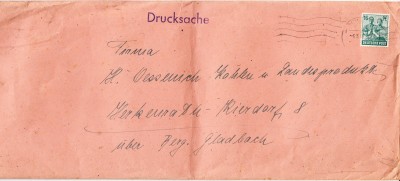 Drucksache
Firma
H. Oessenich Kohlen u Landesprodukte
Herkenrath - Kierdorf 8
über Berg. Gladbach